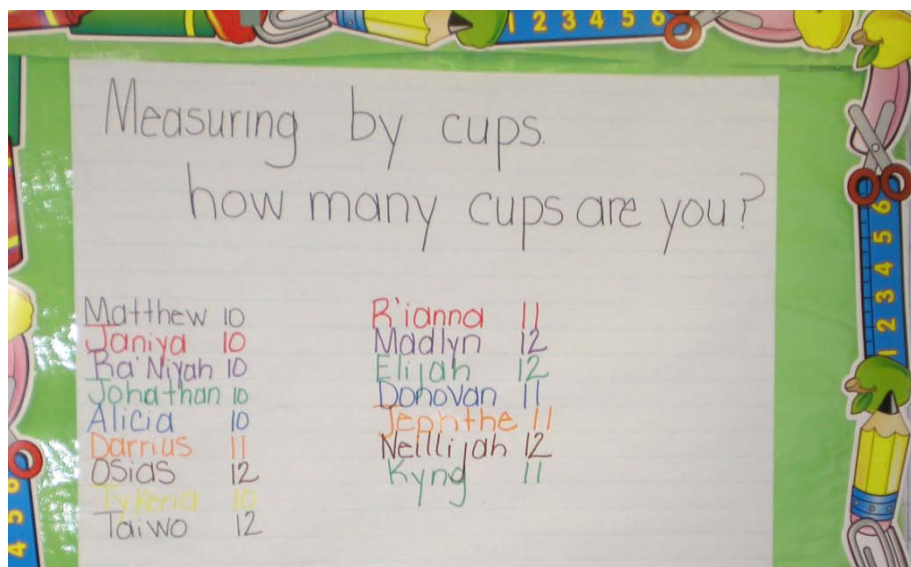 1 2 3 4 5 6
Measuring by cups.
how many cups are you?
Matthew 10
Janiya 10
Ra'Niyah 10
Johathan 10
Alicia 10
Darrius 11
Osias 12
Tykeria 10
Taiwo 12
R'ianna 11
Madlyn 12
Elijah 12
Donovan 11
Jephthe 11
Neillijah 12
Kyng 11
1 2 3 4 5 6
4 5